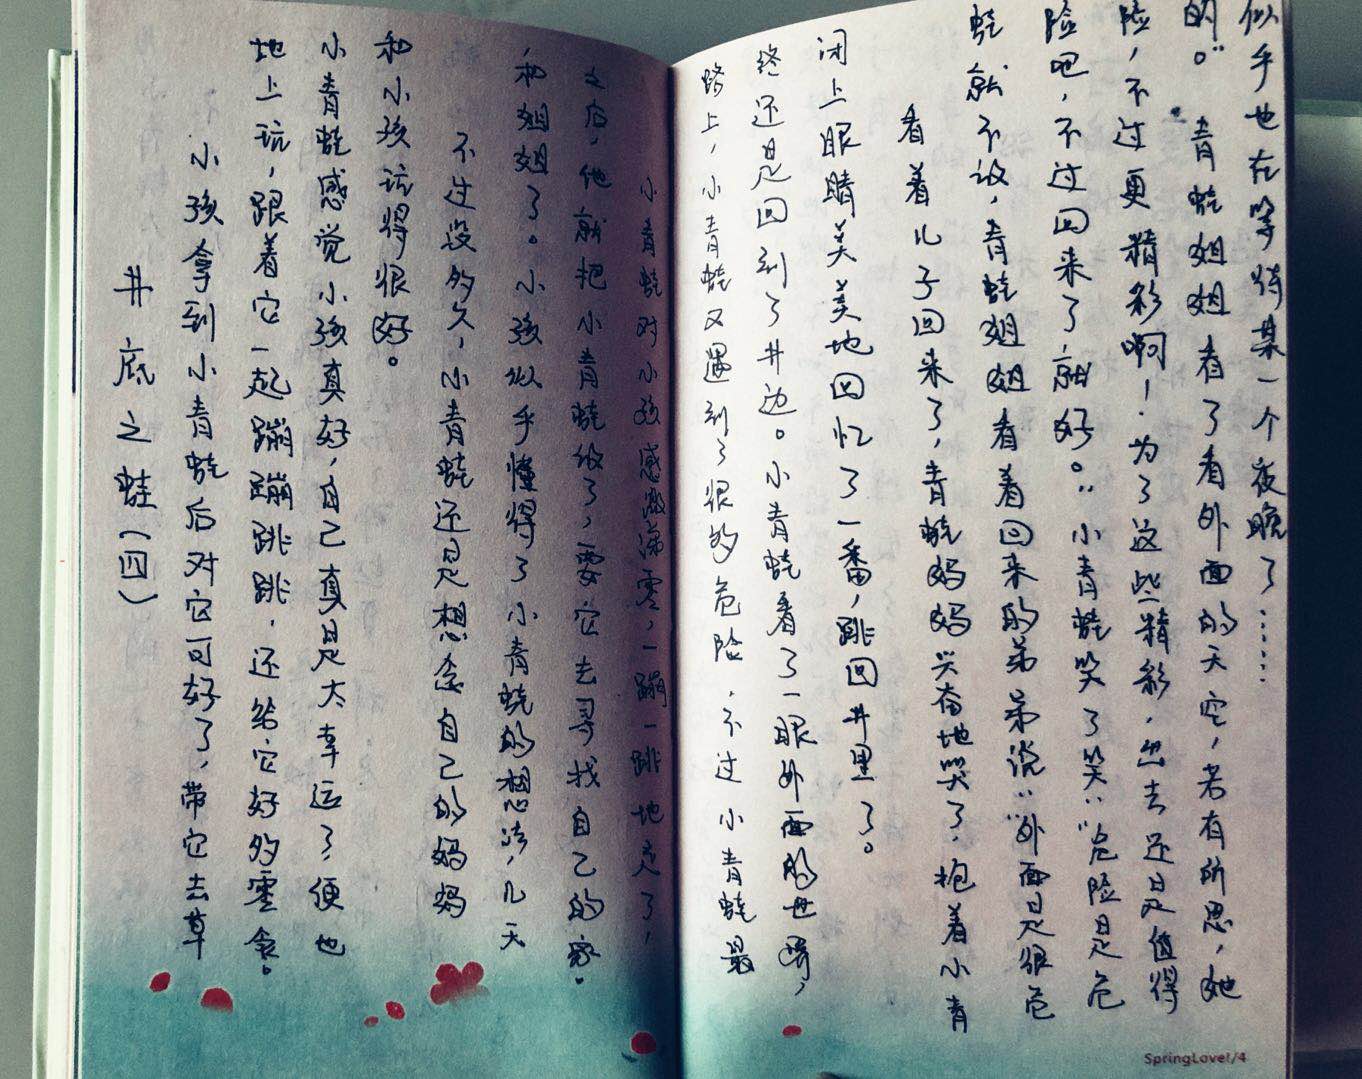 井底之蛙(四)
小孩拿到小青蛙后对它可好了,带它去草
地上玩,跟着它一起蹦蹦跳跳,还给它好多零食。
小青蛙感觉小孩真好,自己真是太幸运了,便也
和小孩玩得很好。
不过没多久,小青蛙还是想念自己的妈妈
和姐姐了。小孩似乎懂得了小青蛙的想法,几天
之后,他就把小青蛙放了,要它去寻找自己的家。
小青蛙对小孩感激涕零,一蹦一跳地走了,
路上,小青蛙又遇到了很多危险,不过小青蛙最
终还是回到了井边。小青蛙看了一眼外面的世界,
闭上眼睛美美地回忆了一番,跳回井里了。
看着儿子回来了,青蛙妈妈兴奋地笑了,抱着小青
蛙就不放,青蛙姐姐看着回来的弟弟说:“外面是很危
险吧,不过回来了就好。”小青蛙笑了笑:“危险是危
险,不过更精彩啊!为了这些精彩,出去还是值得
的。”青蛙姐姐看了看外面的天空,若有所思,她
似乎也在等待某一个夜晚了……
SpringLove!/4